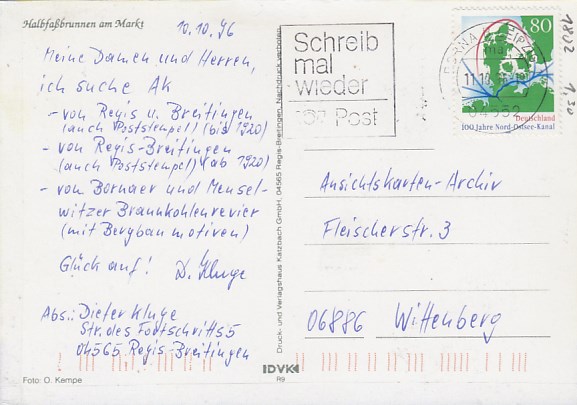 Halbfaßbrunnen am Markt
10.10.96
Meine Damen und Herren,
ich suche AK
- von Regis u. Breitingen
(auch Poststempel) (bis 1920)
- von Regis-Breitingen
(auch Poststempel) (ab 1920)
- von Bornaer und Meusel-
witzer Braunkohlenrevier
(mit Bergbaumotiven)
Glück auf! D. Kluge
Abs.: Dieter Kluge
Str. des Fortschritts 5
04565 Regis-Breitingen
Foto: O. Kempe
Druck- und Verlagshaus Katzbach GmbH, 04565 Regis-Breitingen, Nachdruck verboten
R9
IDVK
Schreib
mal
wieder
Post
11.10.96
04552
80
Deutschland
100 Jahre Nord-Ostsee-Kanal
1802
1,30
Ansichtskarten-Archiv
Fleischerstr. 3
06886 Wittenberg